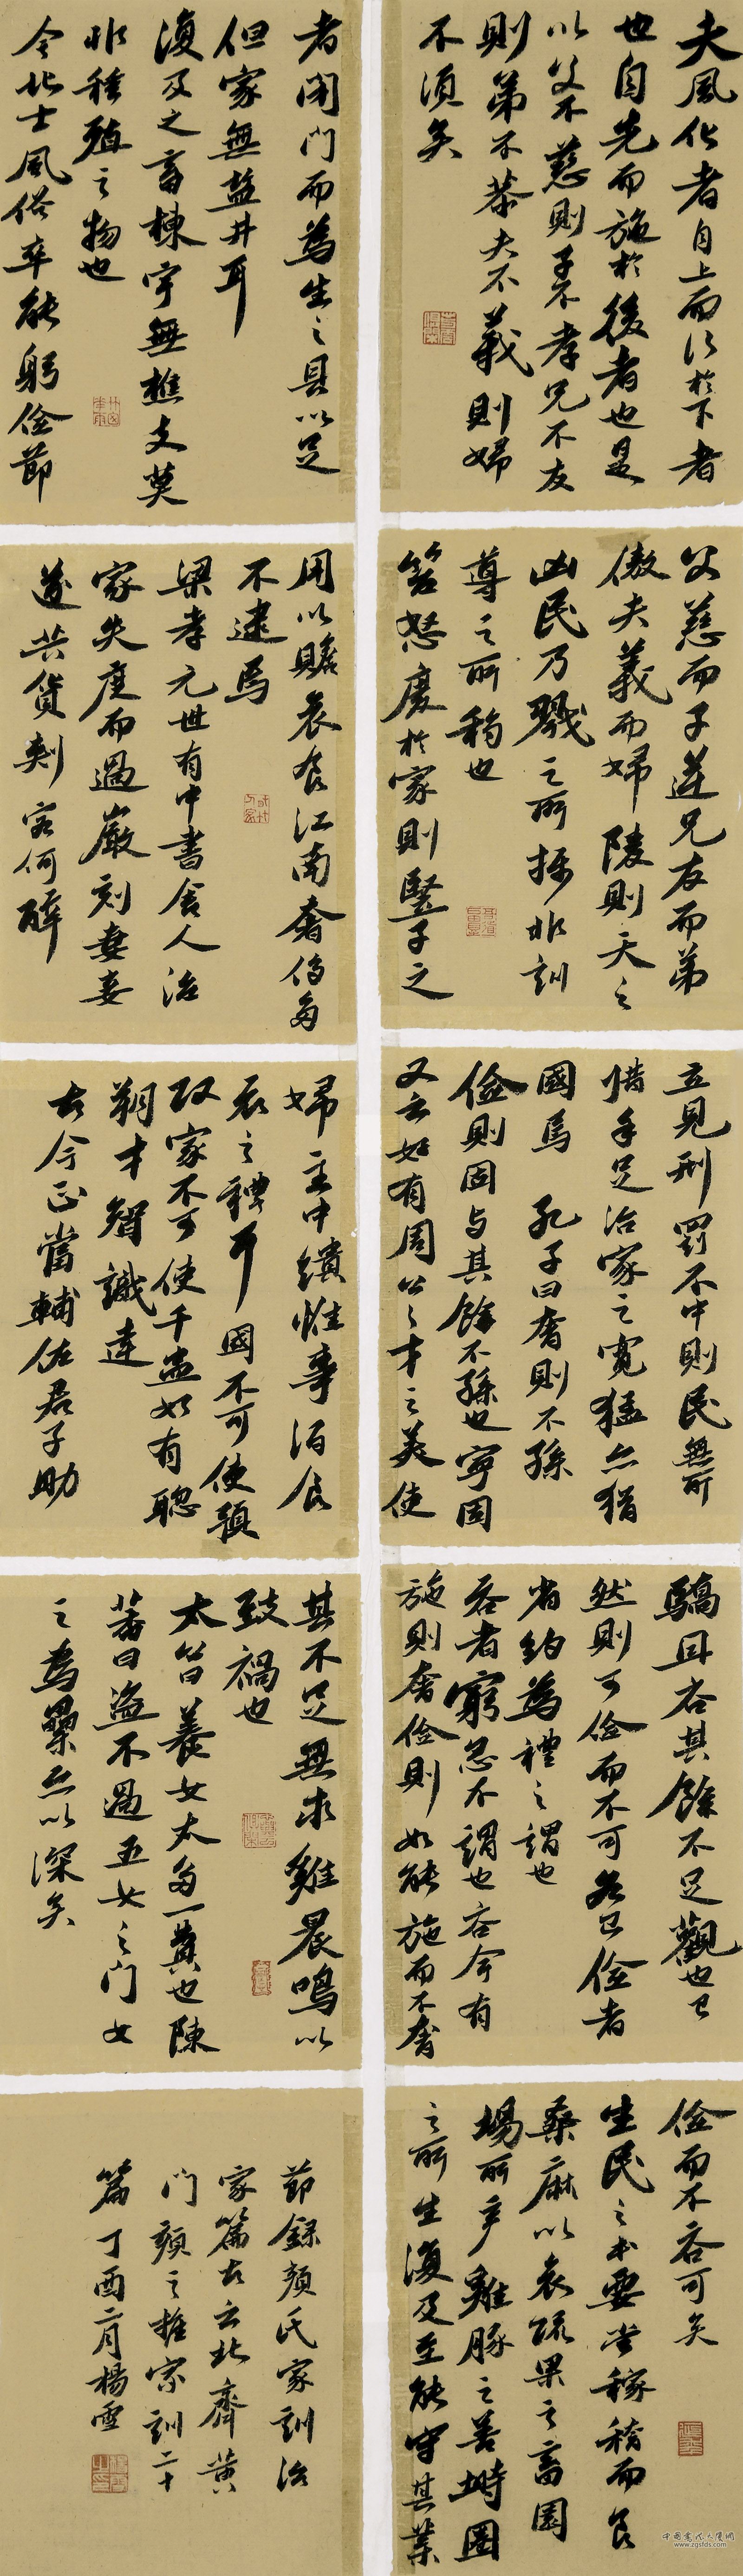 夫風化者自上而行於下者
也自先而施於後者也是
以父不慈則子不孝兄不友
則弟不恭夫不義則婦
不須矣
父慈而子逆兄友而弟
傲夫義而婦陵則天之
凶民乃戮之所攝非訓
尊之所移也
笞怒廢於家則豎子之
立見刑罰不中則民無所
措手足治家之寬猛亦猶
國焉 孔子曰奢則不孫
儉則固與其餘不孫也寧固
又云如有周公之才之美使
驕且吝其餘不足觀也已
然則可儉而不可吝已儉者
省約為禮之謂也
吝者窮急不謂也吝今有
施則奢儉則如能施而不奢
儉而不吝可矣
生民之本要當稼穡而食
桑麻以衣蔬果之畜園
場所產雞豚之善塒圈
之所生復及至能守其業
者閉門而為生之具以足
但家無鹽井耳
復及之畜棟宇無樵支莫
非種殖之物也
今北士風俗率能躬儉節
用以贍衣食江南奢侈多
不逮焉
梁孝元世有中書舍人治
家失度而過嚴刻妻妾
遂共貨刺客伺醉
婦主中饋惟事酒食
衣之禮耳國不可使預
政家不可使干蠱如有聰
朔才智識達
古今正當輔佐君子助
其不足無求雞晨鳴以
致禍也
太笞養女太多一費也陳
蕃曰盜不過五女之門女
之為纍亦以深矣
節錄顏氏家訓治
家篇古云北齊黃
門顏之推家訓二十
篇丁酉二月楊雪
中國書法大廈網
www.zgsfds.com